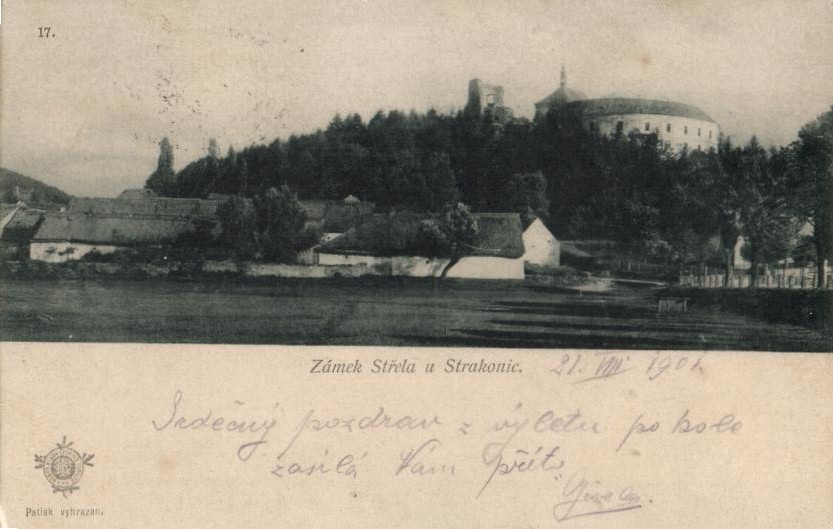 17.
Zámek Střela u Strakonic. 21. VIII 1901.
Srdečný pozdrav z výletu po kole
zasílá Vám
Patisk vyhrazen.